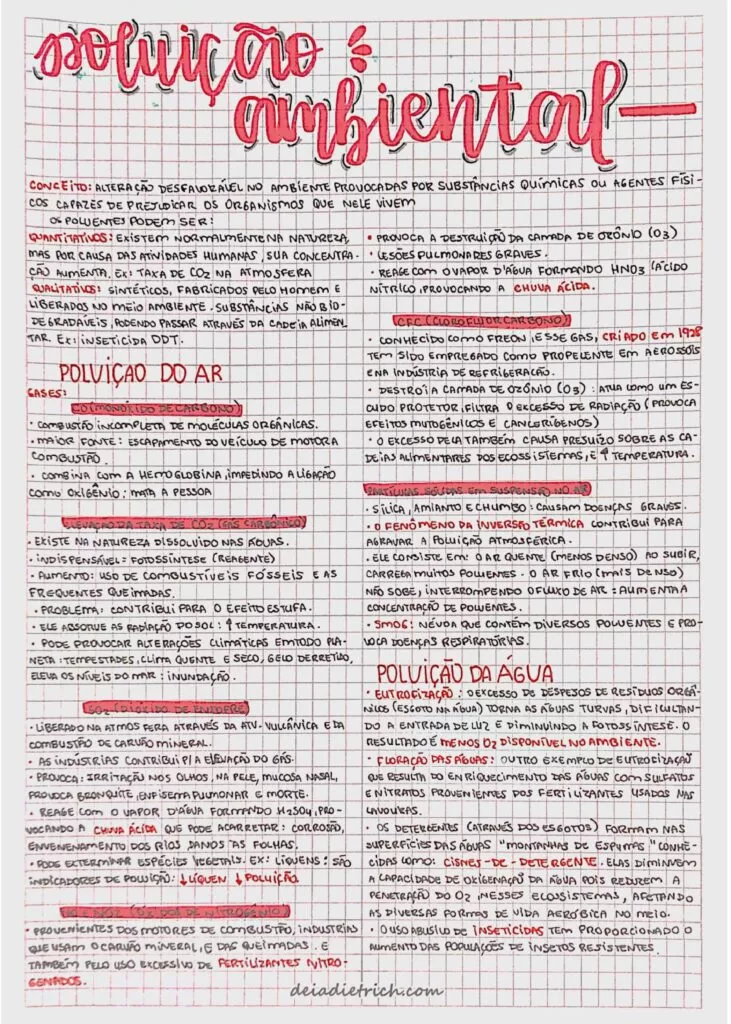 poluição
ambiental
CONCEITO: ALTERAÇÃO DESFAVORÁVEL NO AMBIENTE PROVOCADAS POR SUBSTÂNCIAS QUÍMICAS OU AGENTES FÍSI-
COS CAPAZES DE PREJUDICAR OS ORGANISMOS QUE NELE VIVEM
OS POLUENTES PODEM SER:
QUANTITATIVOS: EXISTEM NORMALMENTE NA NATUREZA,
MAS POR CAUSA DAS ATIVIDADES HUMANAS, SUA CONCENTRA-
ÇÃO AUMENTA. EX: TAXA DE CO2 NA ATMOSFERA
QUALITATIVOS: SINTÉTICOS, FABRICADOS PELO HOMEM E
LIBERADOS NO MEIO AMBIENTE. SUBSTÂNCIAS NÃO BIO-
DEGRADÁVEIS, PODENDO PASSAR ATRAVÉS DA CADEIA ALIMEN-
TAR. EX: INSETICIDA DDT.
POLUIÇAO DO AR
GASES:
CO (MONÓXIDO DE CARBONO)
• COMBUSTÃO INCOMPLETA DE MOLÉCULAS ORGÂNICAS.
• MAIOR FONTE: ESCAPAMENTO DO VEÍCULO DE MOTOR A
COMBUSTÃO.
• COMBINA COM A HEMOGLOBINA, IMPEDINDO A LIGAÇÃO
COM O OXIGÊNIO: MATA A PESSOA
ELEVAÇÃO DA TAXA DE CO2 (GÁS CARBÔNICO)
• EXISTE NA NATUREZA DISSOLVIDO NAS ÁGUAS.
• INDISPENSÁVEL: FOTOSSÍNTESE (REAGENTE)
• AUMENTO: USO DE COMBUSTÍVEIS FÓSSEIS E AS
FREQUENTES QUEIMADAS.
• PROBLEMA: CONTRIBUI PARA O EFEITO ESTUFA.
• ELE ABSORVE AS RADIAÇÃO DO SOL: ↑ TEMPERATURA.
• PODE PROVOCAR ALTERAÇÕES CLIMÁTICAS EM TODO PLA-
NETA: TEMPESTADES, CLIMA QUENTE E SECO, GELO DERRETIDO,
ELEVA OS NÍVEIS DO MAR: INUNDAÇÃO.
SO2 (DIÓXIDO DE ENXOFRE)
• LIBERADO NA ATMOSFERA ATRAVÉS DA ATV. VULCÂNICA E DA
COMBUSTÃO DE CARVÃO MINERAL.
• AS INDÚSTRIAS CONTRIBUI P/ A ELEVAÇÃO DO GÁS.
• PROVOCA: IRRITAÇÃO NOS OLHOS, NA PELE, MUCOSA NASAL,
PROVOCA BRONQUITE, ENFISEMA PULMONAR E MORTE.
• REAGE COM O VAPOR D'ÁGUA FORMANDO H2SO4, PRO-
VOCANDO A CHUVA ÁCIDA QUE PODE ACARRETAR: CORROSÃO,
ENVENENAMENTO DOS RIOS, DANOS ÀS FOLHAS.
• PODE EXTERMINAR ESPÉCIES VEGETAIS. EX: LIQUENS: SÃO
INDICADORES DE POLUIÇÃO: ↓ LÍQUEN ↓ POLUIÇÃO
DE NITROGÊNIO)
• PROVENIENTES DOS MOTORES DE COMBUSTÃO, INDUSTRIAS
QUE USAM O CARVÃO MINERAL, E DAS QUEIMADAS. E
TAMBÉM PELO USO EXCESSIVO DE FERTILIZANTES NITRO-
GENADOS.
• PROVOCA A DESTRUIÇÃO DA CAMADA DE OZÔNIO (O3)
• LESÕES PULMONARES GRAVES.
• REAGE COM O VAPOR D'ÁGUA FORMANDO HNO3 (ÁCIDO
NÍTRICO), PROVOCANDO A CHUVA ÁCIDA.
CFC (CLOROFLUORCARBONO)
• CONHECIDO COMO FREON, ESSE GAS, CRIADO EM 1928
TEM SIDO EMPREGADO COMO PROPELENTE EM AEROSSÓIS
E NA INDÚSTRIA DE REFRIGERAÇÃO.
• DESTRÓI A CAMADA DE OZÔNIO (O3): ATUA COMO UM ES-
CUDO PROTETOR, FILTRA O EXCESSO DE RADIAÇÃO (PROVOCA
EFEITOS MUTOGÊNICOS E CANCERÍGENOS)
• O EXCESSO DELA TAMBÉM CAUSA PREJUÍZO SOBRE AS CA-
DEIAS ALIMENTARES DOS ECOSSISTEMAS, E ↑ TEMPERATURA.
PARTÍCULAS SÓLIDAS EM SUSPENSÃO NO AR
• SÍLICA, AMIANTO E CHUMBO: CAUSAM DOENÇAS GRAVES.
• O FENÔMENO DA INVERSÃO TÉRMICA CONTRIBUI PARA
AGRAVAR A POLUIÇÃO ATMOSFÉRICA.
• ELE CONSISTE EM: O AR QUENTE (MENOS DENSO) AO SUBIR,
CARREGA MUITOS POLUENTES. O AR FRIO (MAIS DENSO)
NÃO SOBE, INTERROMPENDO O FLUXO DE AR: AUMENTA A
CONCENTRAÇÃO DE POLUENTES.
• SMOG: NÉVOA QUE CONTÉM DIVERSOS POLUENTES E PRO-
VOCA DOENÇAS RESPIRATÓRIAS.
POLUIÇÃO DA ÁGUA
• EUTROFIZAÇÃO: O EXCESSO DE DESPEJOS DE RESÍDUOS ORGÂ-
NICOS (ESGOTO NA ÁGUA) TORNA AS ÁGUAS TURVAS, DIFICULTAN-
DO A ENTRADA DE LUZ E DIMINUINDO A FOTOSSÍNTESE. O
RESULTADO É MENOS O2 DISPONÍVEL NO AMBIENTE.
• FLORAÇÃO DAS ÁGUAS: OUTRO EXEMPLO DE EUTROFIZAÇÃO
QUE RESULTA DO ENRIQUECIMENTO DAS ÁGUAS COM SULFATOS
E NITRATOS PROVENIENTES DOS FERTILIZANTES USADOS NAS
LAVOURAS.
• OS DETERGENTES (ATRAVÉS DOS ESGOTOS) FORMAM NAS
SUPERFÍCIES DAS ÁGUAS "MONTANHAS DE ESPUMAS" CONHE-
CIDAS COMO: CISNES-DE-DETERGENTE. ELAS DIMINUEM
A CAPACIDADE DE OXIGENAÇÃO DA ÁGUA POIS REDUZEM A
PENETRAÇÃO DO O2, NESSES ECOSSISTEMAS, AFETANDO
AS DIVERSAS FORMAS DE VIDA AERÓBICA NO MEIO.
• O USO ABUSIVO DE INSETICIDAS TEM PROPORCIONADO O
AUMENTO DAS POPULAÇÕES DE INSETOS RESISTENTES.
deiadietrich.com